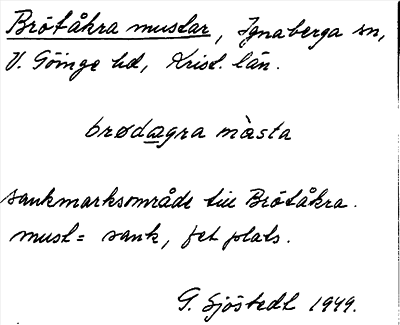 Brötåkra mustar, Ignaberga sn,
V. Göinge hd, Krist. län.
brødagra màsta
sankmarksområde till Brötåkra.
must = sank, fet plats.
G. Sjöstedt 1949.